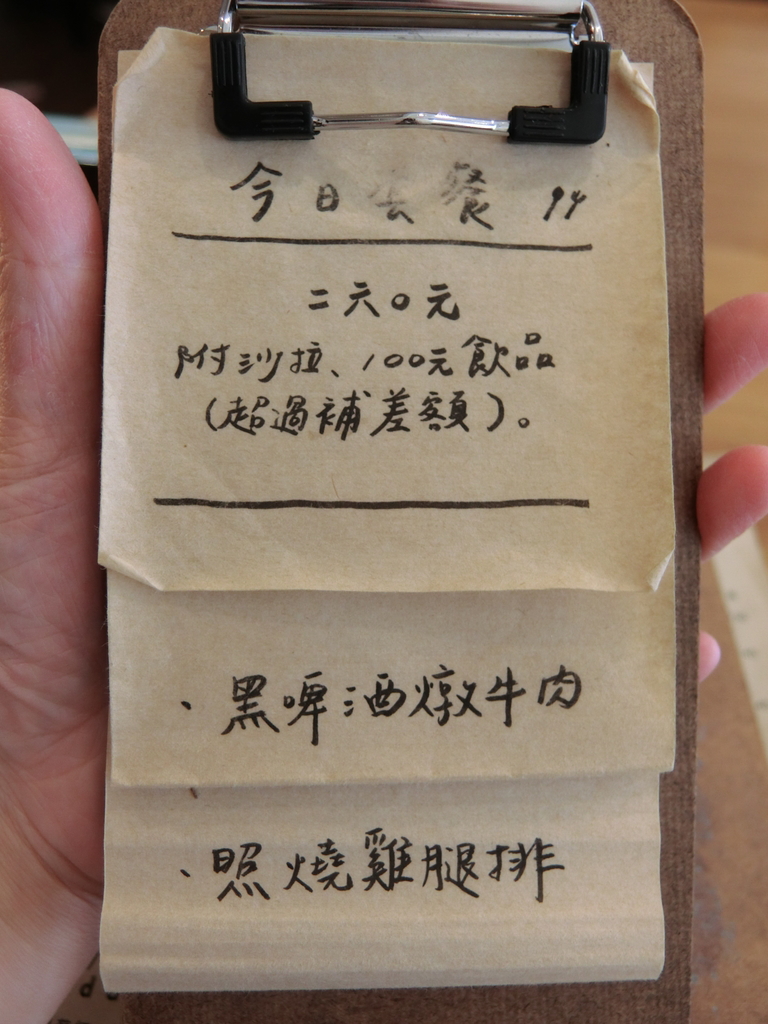 今日套餐
二六0元
附沙拉、100元飲品
(超過補差額)。
·黑啤酒燉牛肉
·照燒雞腿排